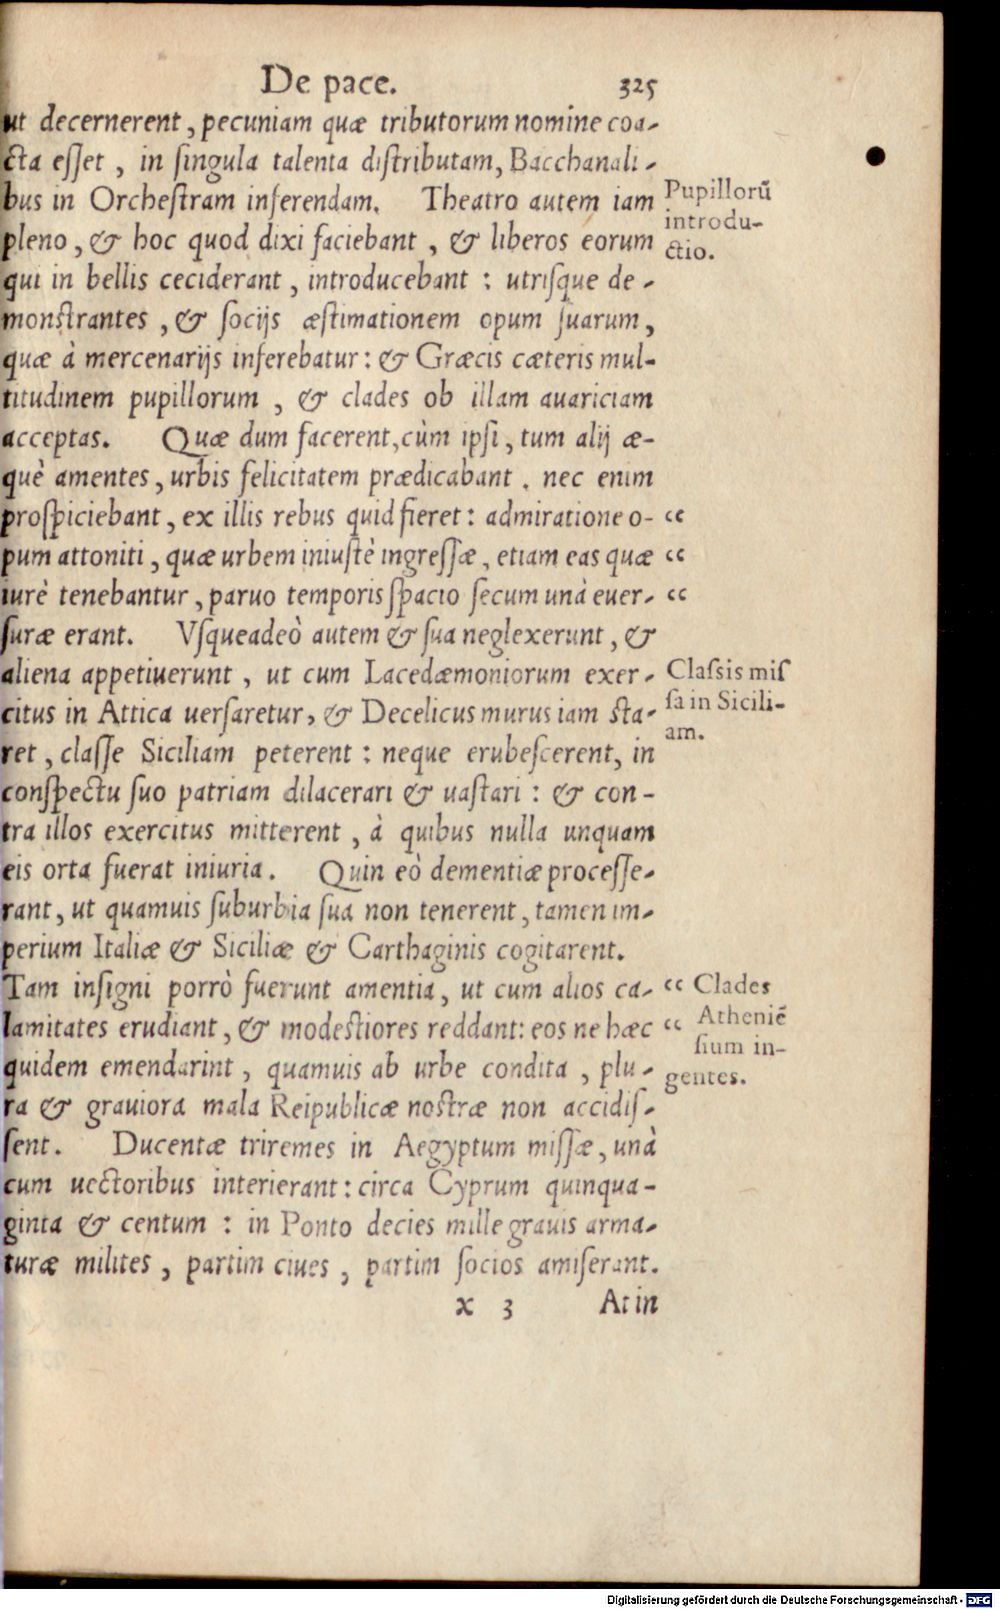 De pace. 325
ut decernerent, pecuniam quæ tributorum nomine coa-
cta eſſet, in ſingula talenta diſtributam, Bacchanali-
bus in Orcheſtram inferendam. Theatro autem iam
pleno, & hoc quod dixi faciebant, & liberos eorum
qui in bellis ceciderant, introducebant: utriſque de-
monſtrantes, & ſocijs æſtimationem opum ſuarum,
quæ à mercenarijs inferebatur: & Græcis cæteris mul-
titudinem pupillorum, & clades ob illam auariciam
acceptas. Quæ dum facerent, cùm ipſi, tum alij æ-
què amentes, urbis felicitatem prædicabant. nec enim
proſpiciebant, ex illis rebus quid fieret: admiratione o-
pum attoniti, quæ urbem iniuſtè ingreſſæ, etiam eas quæ
iurè tenebantur, paruo temporis ſpacio ſecum unà euer-
ſuræ erant. Vſqueadeò autem & ſua neglexerunt, &
aliena appetiuerunt, ut cum Lacedæmoniorum exer-
citus in Attica uerſaretur, & Decelicus murus iam ſta-
ret, claſſe Siciliam peterent: neque erubeſcerent, in
conſpectu ſuo patriam dilacerari & uaſtari: & con-
tra illos exercitus mitterent, à quibus nulla unquam
eis orta fuerat iniuria. Quin eò dementiæ proceſſe-
rant, ut quamuis ſuburbia ſua non tenerent, tamen im-
perium Italiæ & Siciliæ & Carthaginis cogitarent.
Tam inſigni porrò fuerunt amentia, ut cum alios ca-
lamitates erudiant, & modeſtiores reddant: eos ne hæc
quidem emendarint, quamuis ab urbe condita, plu-
ra & grauiora mala Reipublicæ noſtræ non accidiſ-
ſent. Ducentæ triremes in Aegyptum miſſæ, unà
cum uectoribus interierant: circa Cyprum quinqua-
ginta & centum: in Ponto decies mille grauis arma-
turæ milites, partim ciues, partim ſocios amiſerant.
x 3 At in
Pupillorū
introdu-
ctio.
“
“
“
Claſsis miſ
ſa in Sicili-
am.
“ Clades
“ Atheniē
ſium in-
gentes.
Digitalisierung gefördert durch die Deutsche Forschungsgemeinschaft - DFG